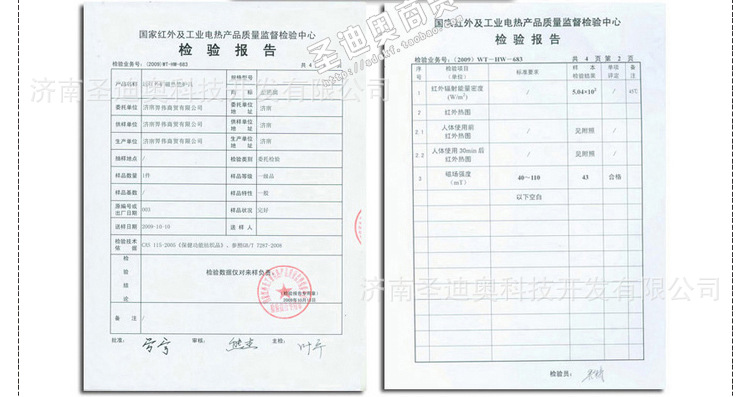 国家红外及工业电热产品质量监督检验中心
检 验 报 告
检验业务号：(2009)WT-HW-683
共 4
规格型号
产品名称
商 标
委托单位 济南羿伟商贸有限公司 委托单位地址 济南
供样单位 济南羿伟商贸有限公司 供样单位地址 济南
生产单位 济南羿伟商贸有限公司 生产单位地址 济南
抽样地点 / 检验类别 委托检验
样品数量 1件 样品等级 一级品
样品基数 / 样品特性 一般
原编号或出厂日期 003 样品状况 完好
送样日期 2009-10-10 送 样 人
检验技术依据 CAS 115-2005《保健功能纺织品》，参照GB/T 7287-2008
检验结论
检验数据仅对来样负责。
备 注 /
批准： 审核： 主检：
国家红外及工业电热产品质量监督检验中心
检 验 报 告
检验业务号：(2009) WT-HW-683 共 4 页 第 2 页
序号 检验项目（单位） 标准要求 样 本 检验结果 单项评定 备注
1 红外辐射能量密度（W/m²） / 5.04×10² / 45℃
2 红外热图 / / /
2.1 人体使用前红外热图 / 见附照 /
2.2 人体使用 30min 后红外热图 / 见附照 /
3 磁场强度（mT） 40～110 43 合格
以下空白
检验员：
圣迪奥商贸
济南圣迪奥科技开发有限公司
济南圣迪奥科技开发有限公司